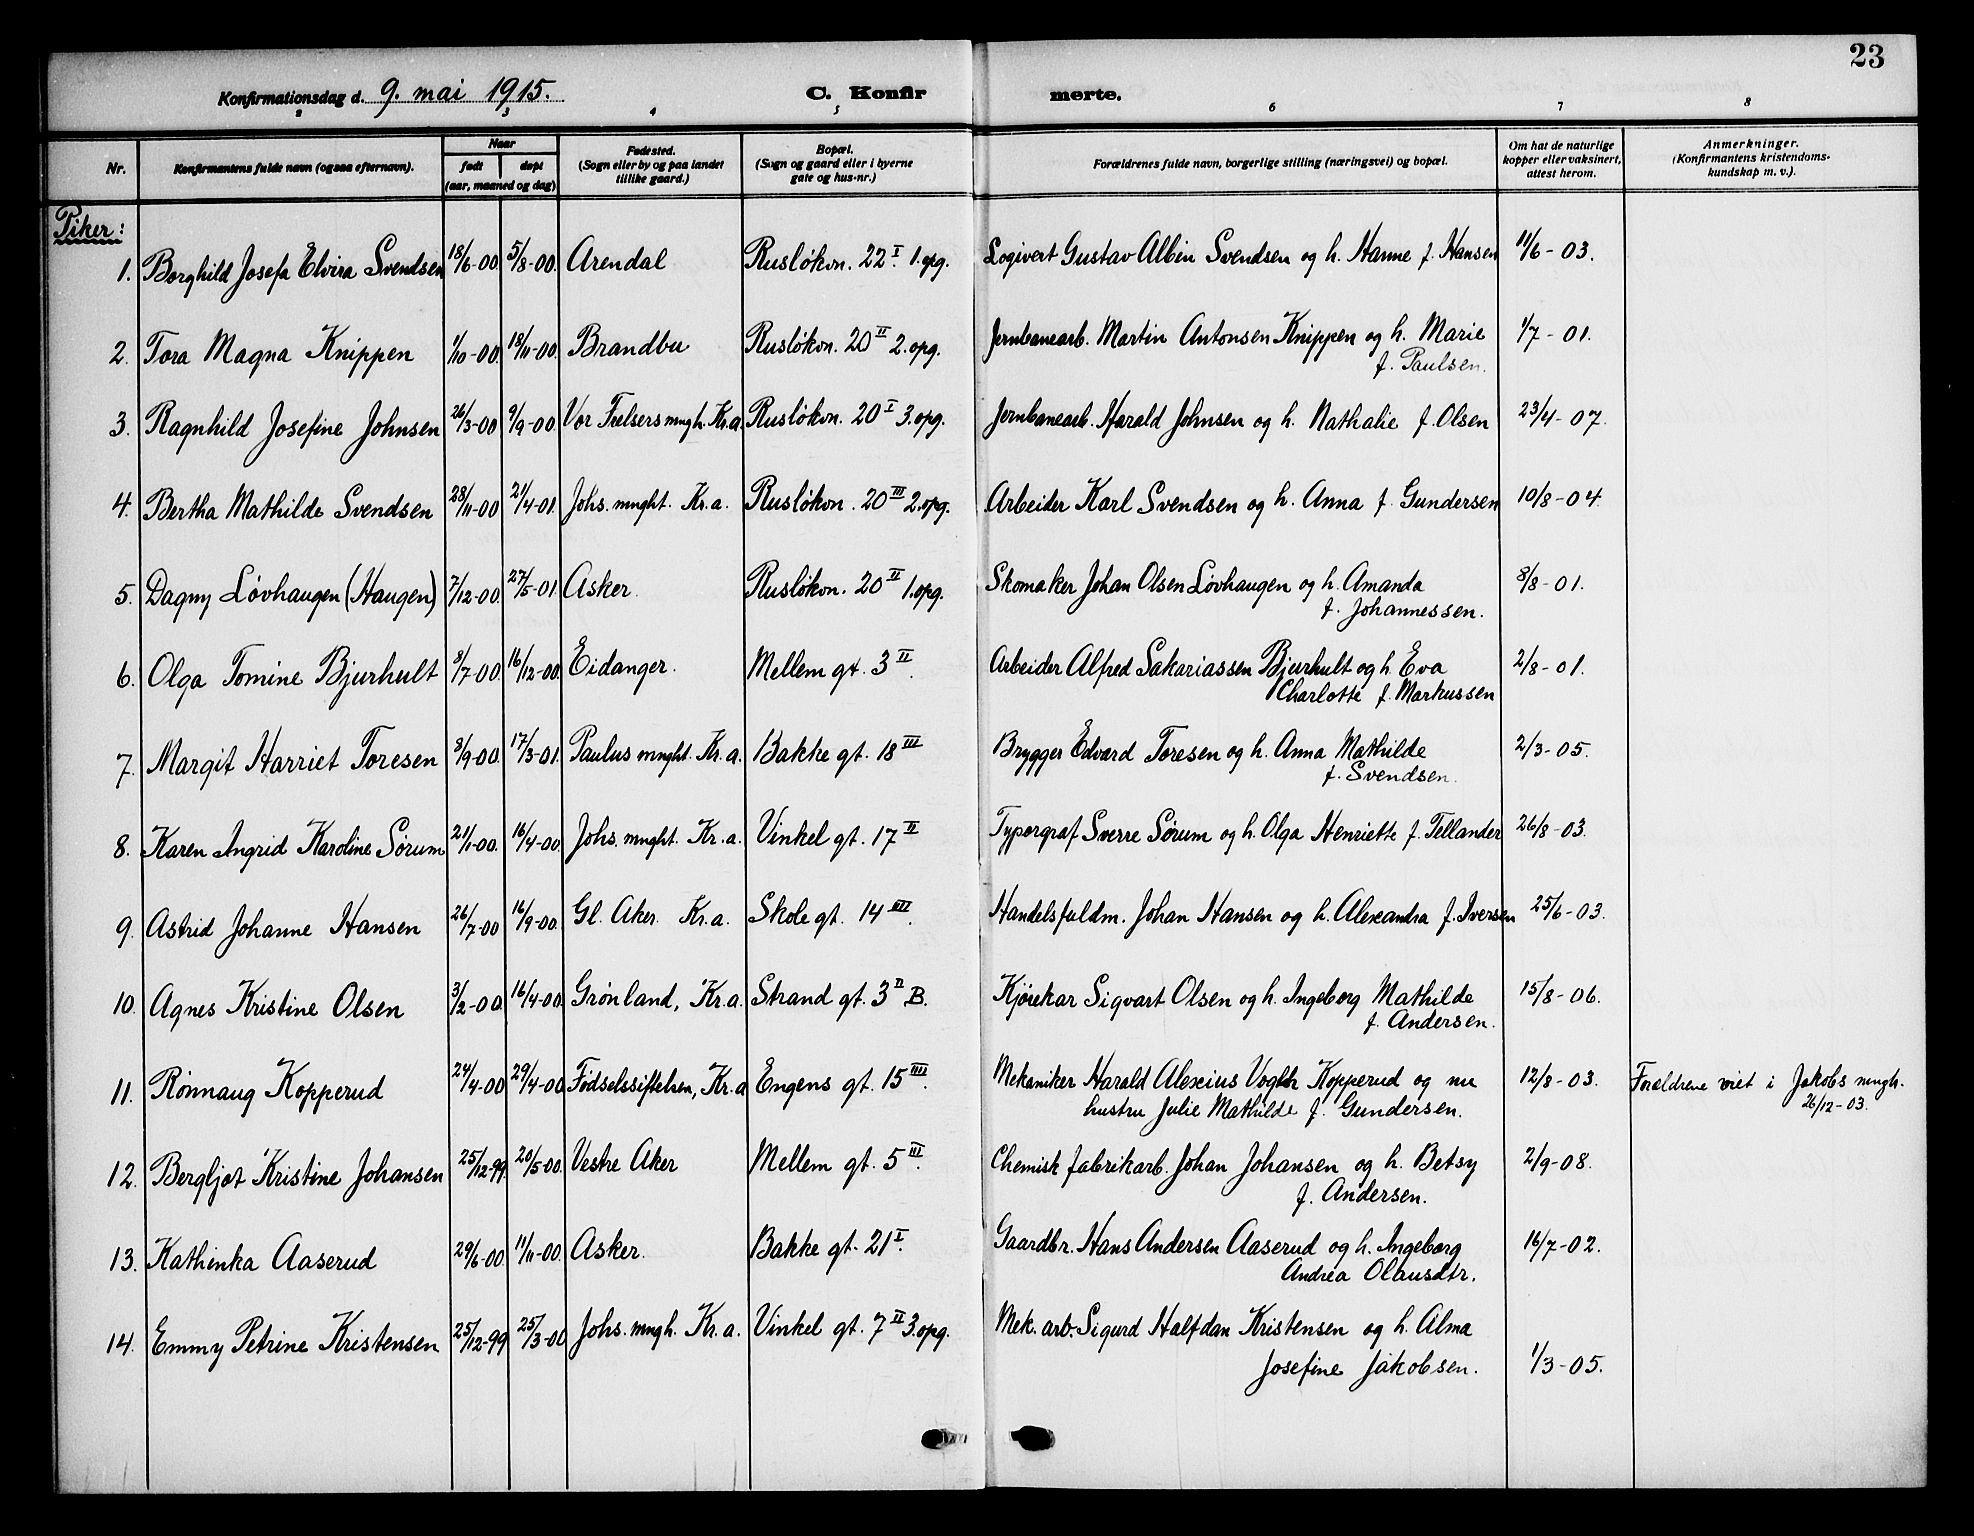 23
Konfirmationsdag d. 9. mai 1915. C. Konfir merte.
2 3 4 5 6 7 8
Nr. Konfirmantens fulde navn (ogsaa efternavn). Naar født døpt (aar, maaned og dag) Fødested. (Sogn eller by og paa landet tillike gaard.) Bopæl. (Sogn og gaard eller i byerne gate og hus-nr.) Forældrenes fulde navn, borgerlige stilling (næringsvei) og bopæl. Om hat de naturlige kopper eller vaksinert, attest herom. Anmerkninger. (Konfirmantens kristendoms-kundskap m. v.).
Piker:
1. Borghild Josefa Elvira Svendsen 18/6-00 5/8-00. Arendal Rusløkvn. 22 I. 1.opg. Logivert Gustav Albin Svendsen og h. Hanne f. Hansen 11/6-03.
2. Tora Magna Knippen 1/10-00. 18/11-00. Brandbu Rusløkvn. 20 II 2.opg. Jernbanearb. Martin Antonsen Knippen og h. Marie 1/7-01.
f. Paulsen.
3. Ragnhild Josefine Johnsen 26/3-00 9/9-00. Vor Frelsers mngh. Kr.a Rusløkvn. 20 I 3.opg. Jernbanearb. Harald Johnsen og h. Nathalie f. Olsen 23/4-07.
4. Bertha Mathilde Svendsen 28/11-00 21/4-01. Johs. mnght. Kr.a. Rusløkvn. 20 III 2.opg. Arbeider Karl Svendsen og h. Anna f. Gundersen 10/8-04.
5. Dagny Løvhaugen (Haugen) 7/12-00. 27/5-01. Asker. Rusløkvn. 20 II 1.opg. Skomaker Johan Olsen Løvhaugen og h. Amanda 8/8-01.
f. Johannessen.
6. Olga Tomine Bjurhult 8/7-00. 16/12-00. Eidanger. Mellem gt. 3 II. Arbeider Alfred Sakariassen Bjurhult og h. Eva 2/8-01.
Charlotte f. Markussen
7. Margit Harriet Toresen 8/9-00. 17/3-01. Paulus mnght. Kr.a. Bakke gt. 18 III Brygger Edvard Toresen og h. Anna Mathilde 2/3-05.
f. Svendsen.
8. Karen Ingrid Karoline Sørum 21/1-00. 16/4-00. Johs. mnght. Kr.a. Vinkel gt. 17 II Typorgraf Sverre Sørum og h. Olga Henriette f. Tellander 26/8-03.
9. Astrid Johanne Hansen 26/7-00 16/9-00. Gl. Aker. Kr.a. Skole gt. 14 III. Handelsfuldm. Johan Hansen og h. Alexandra f. Iversen 25/6-03.
10. Agnes Kristine Olsen 3/2-00. 16/4-00. Grønland, Kr.a. Strand gt. 3 II B. Kjørekar Sigvart Olsen og h. Ingeborg Mathilde 15/8-06.
f. Andersen.
11. Rønnaug Kopperud 24/4-00 29/4-00 Fødselsstiftelsen, Kr.a Engens gt. 15 III. Mekaniker Harald Alexius Kopperud og nu 12/8-03. Forældrene viet i Jakobs mngh.
hustru Julie Mathilde f. Gundersen. 26/12-03.
12. Bergljot Kristine Johansen 25/12-99. 20/5-00. Vestre Aker Mellem gt. 5 III. Chemisk fabrikarb. Johan Johansen og h. Betsy 2/9-08.
f. Andersen.
13. Kathinka Aaserud 29/6-00. 11/11-00. Asker. Bakke gt. 21 I. Gaardbr. Hans Andersen Aaserud og h. Ingeborg 16/7-02.
Andrea Olausdtr.
14. Emmy Petrine Kristensen 25/12-99 25/3-00 Johs. mngh. Kr.a. Vinkel gt. 7 II 3.opg. Mek. arb. Sigurd Halfdan Kristensen og h. Alma
Josefine Jakobsen. 1/3-05.